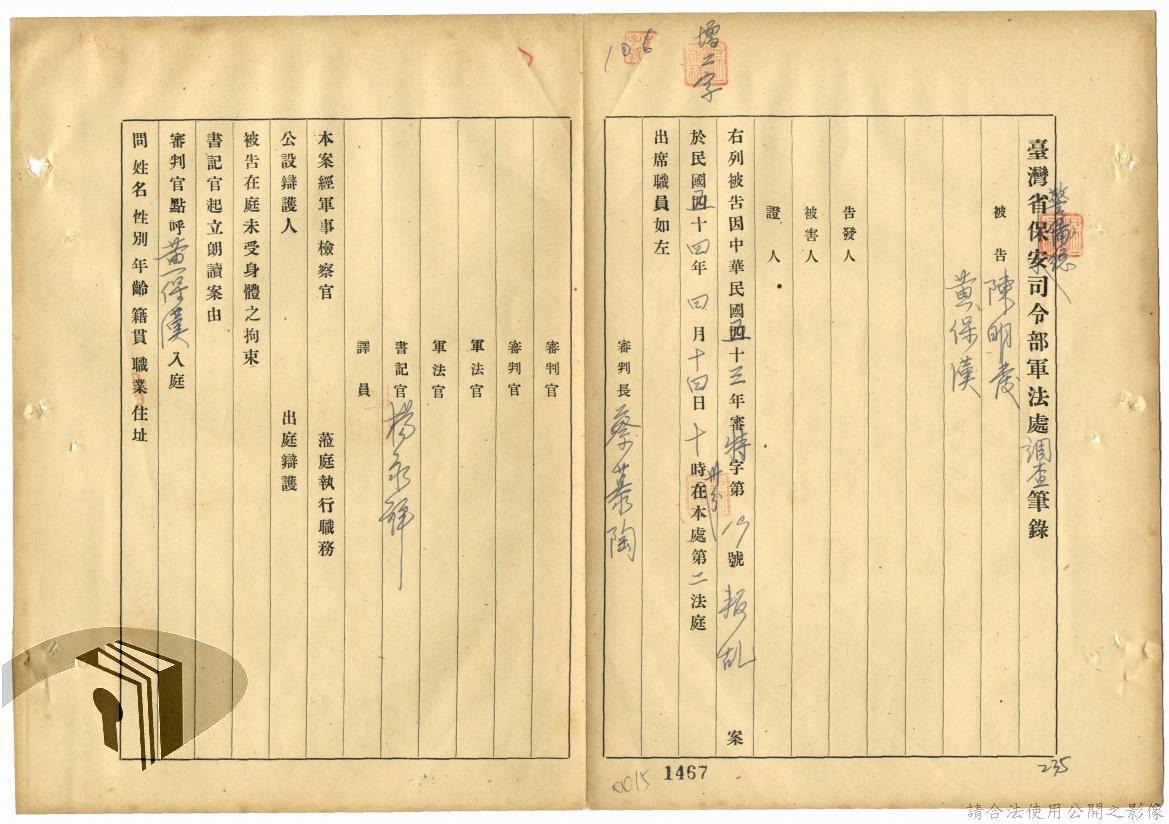 臺灣省保安司令部軍法處調查筆錄
警備總
被告 陳明發
黃保漢
告發人
被害人
證人
右列被告因中華民國五十三年審特字第 號 叛乱 案
於民國五十四年四月十四日十時卅分在本處第二法庭
出席職員如左
審判長 蔡慕陶
增二字
審判官
審判官
軍法官
軍法官
書記官 楊永祥
譯員
本案經軍事檢察官 蒞庭執行職務
公設辯護人 出庭辯護
被告在庭未受身體之拘束
書記官起立朗讀案由
審判官點呼黃保漢入庭
問姓名性別年齡籍貫職業住址
0015
1467
235
請合法使用公開之影像